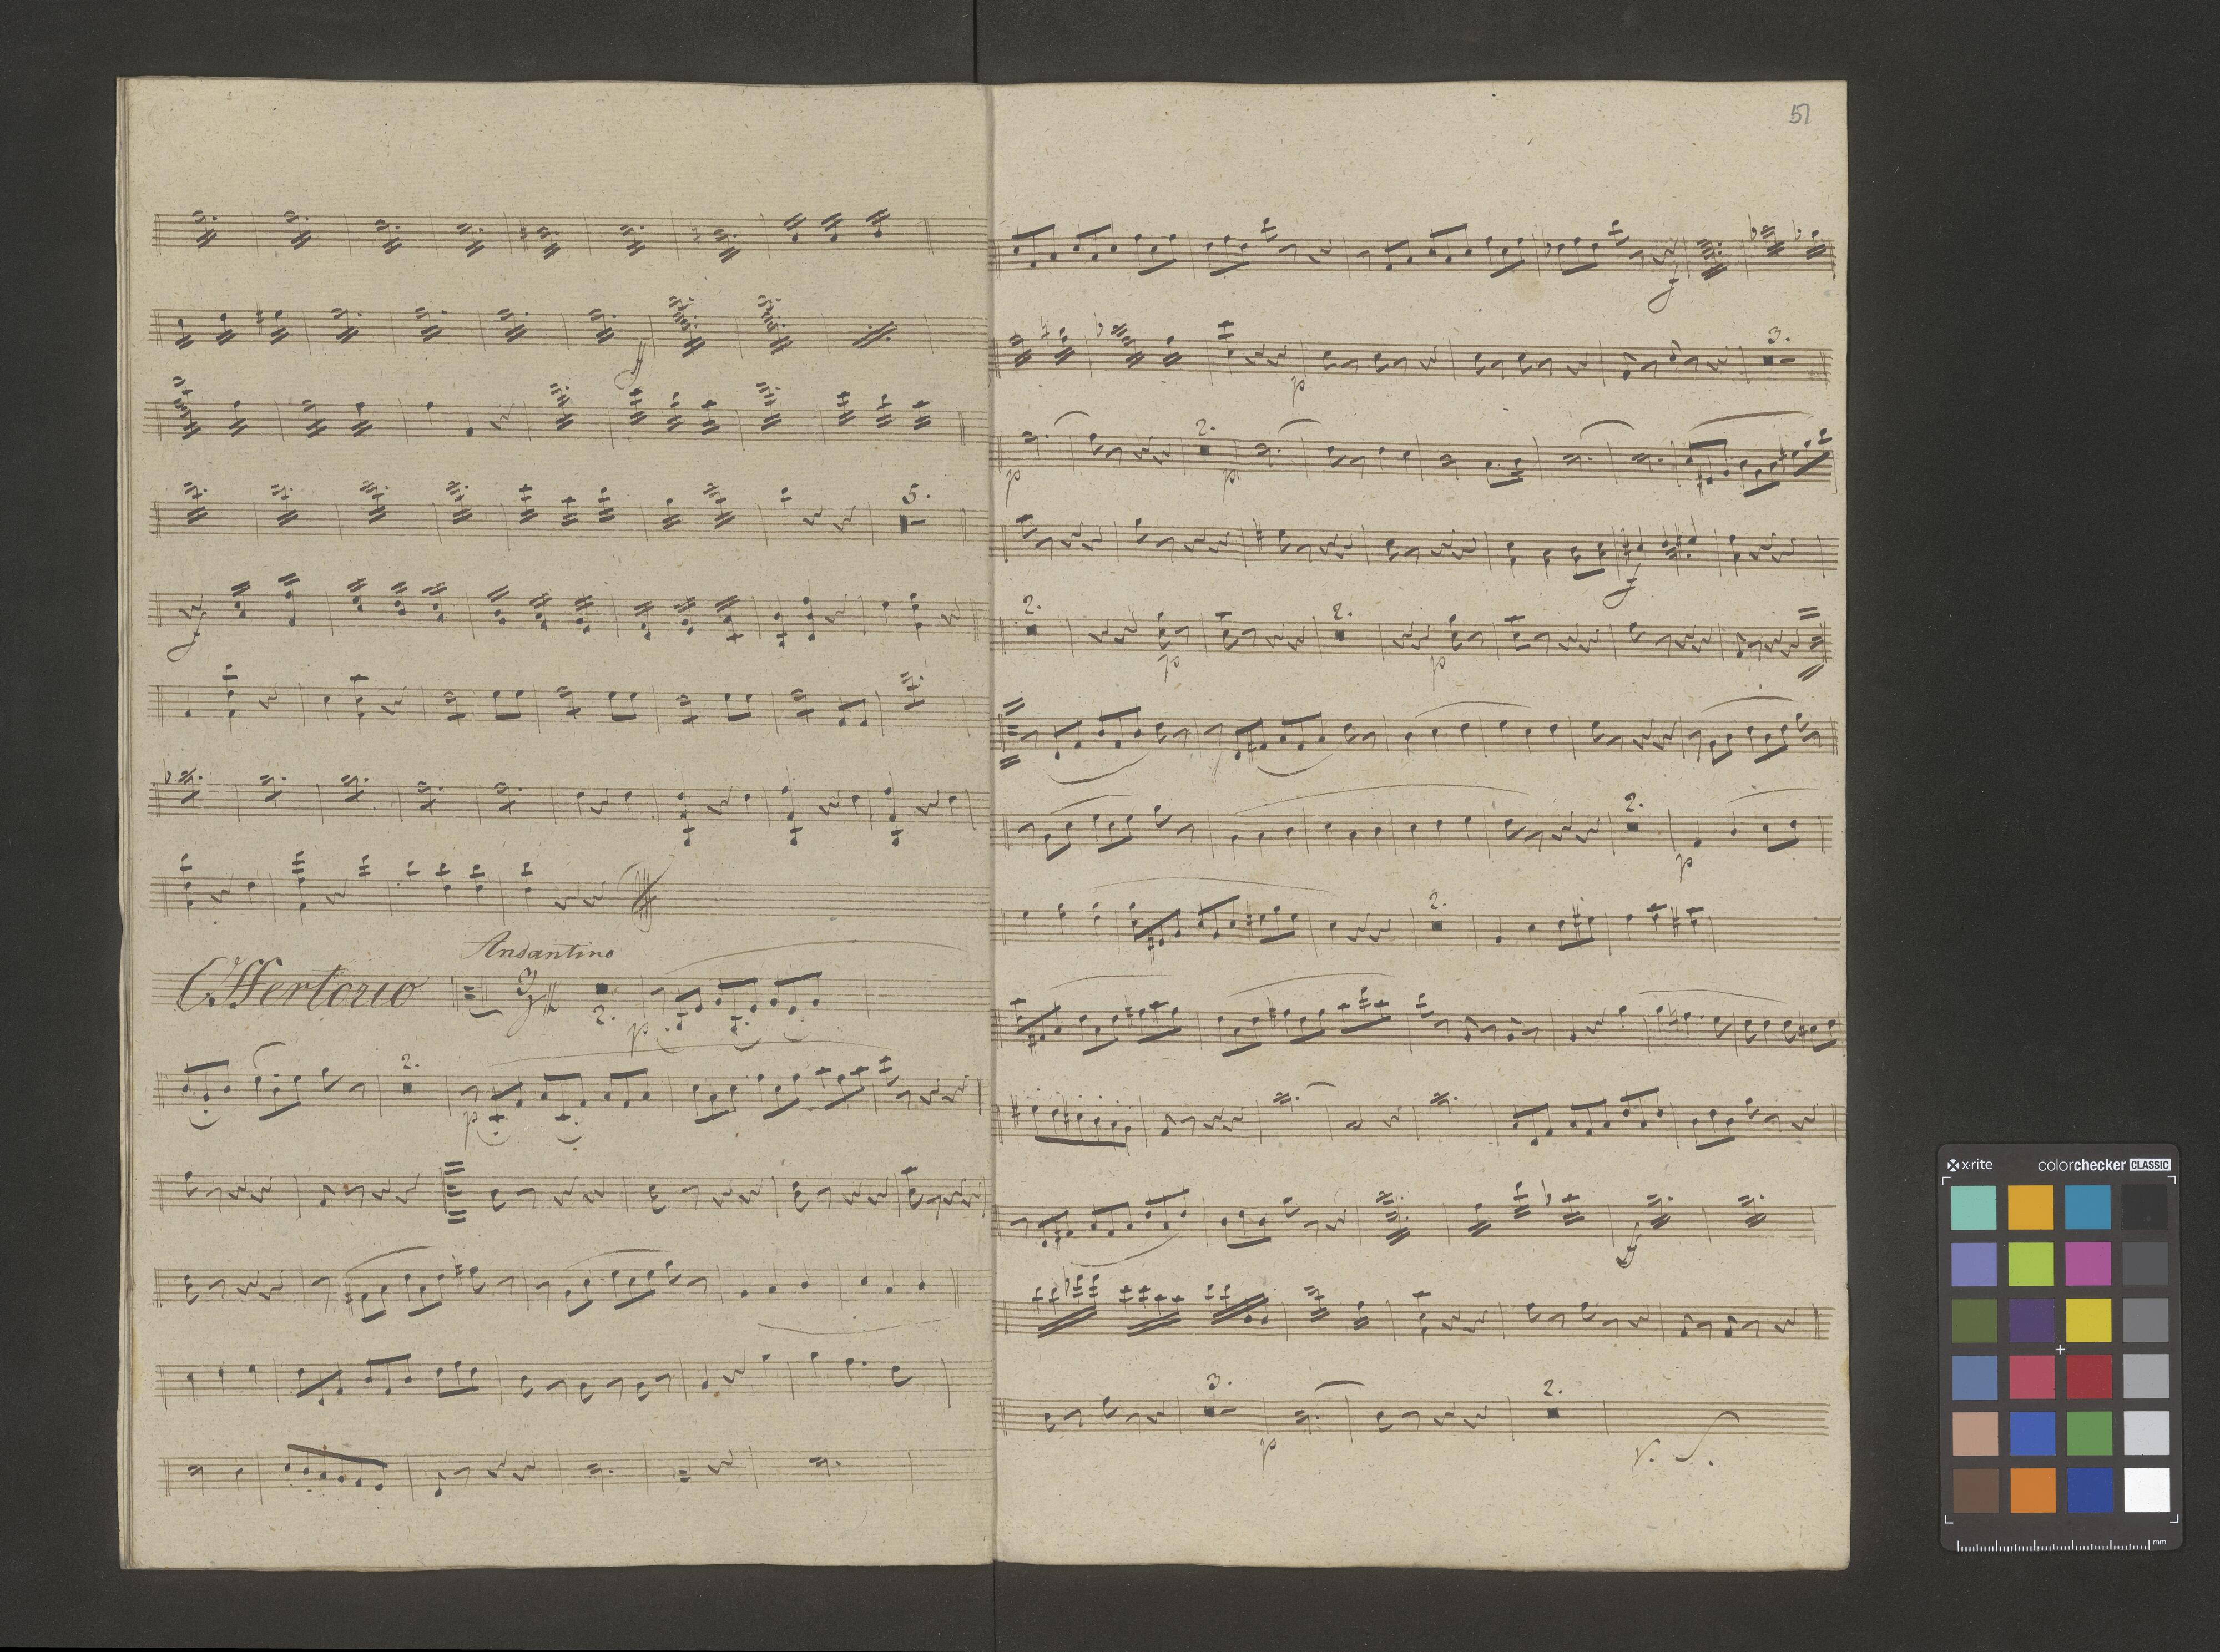 f
5.
f
Andantino
Offertorio 3/4 2. p
2.
p
51
f
3.
p
2.
p p
f
2. 2.
p p
2.
p
2.
f
3. 2.
p
V. S.
x-rite colorchecker CLASSIC
mm